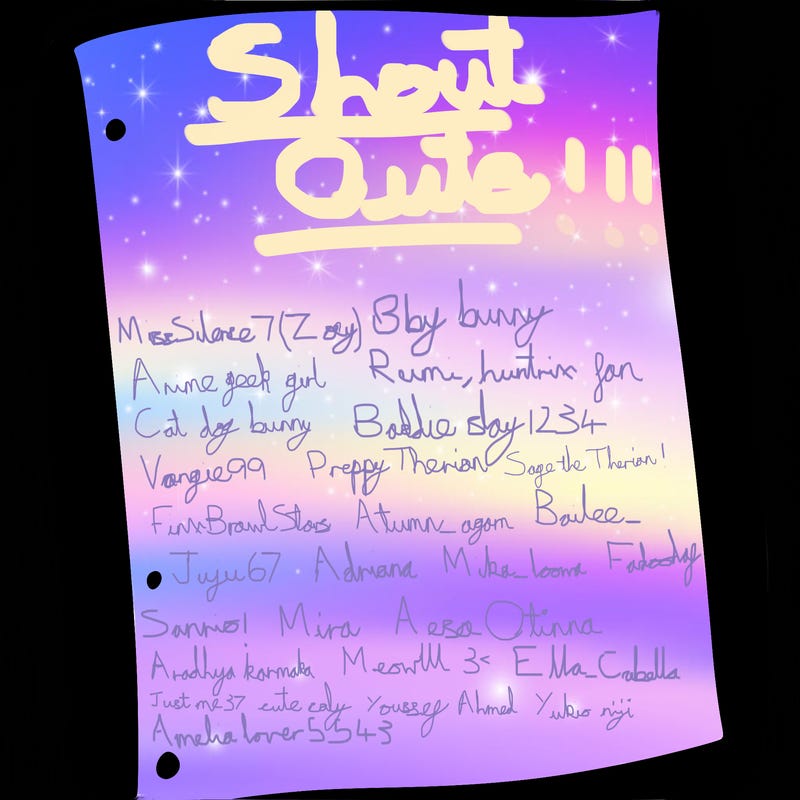 Shout
Outs!!!
MissSilence7(Zoey) Bby bunny
Anime geek girl Rumi, huntrix fan
Cat dog bunny Baddie slay1234
Vangie99 Preppy Therian Sage the Therian!
FinnBrawlStars Atumn_agan Bailee_
Juju67 Adriana Mika_looma
Sanrio! Mira Otinna
Aradhya karmaka Meowlll 3< Ella_Cabella
Just me37 cute caly Youssef Ahmed Yukio niji
Amelia lover5543